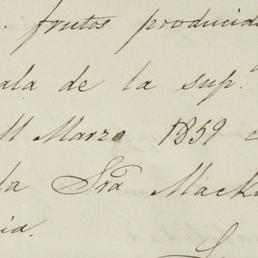 frutos producid
ala de la sup.ª
11 Marzo 1859
la Sra Mack
ia.